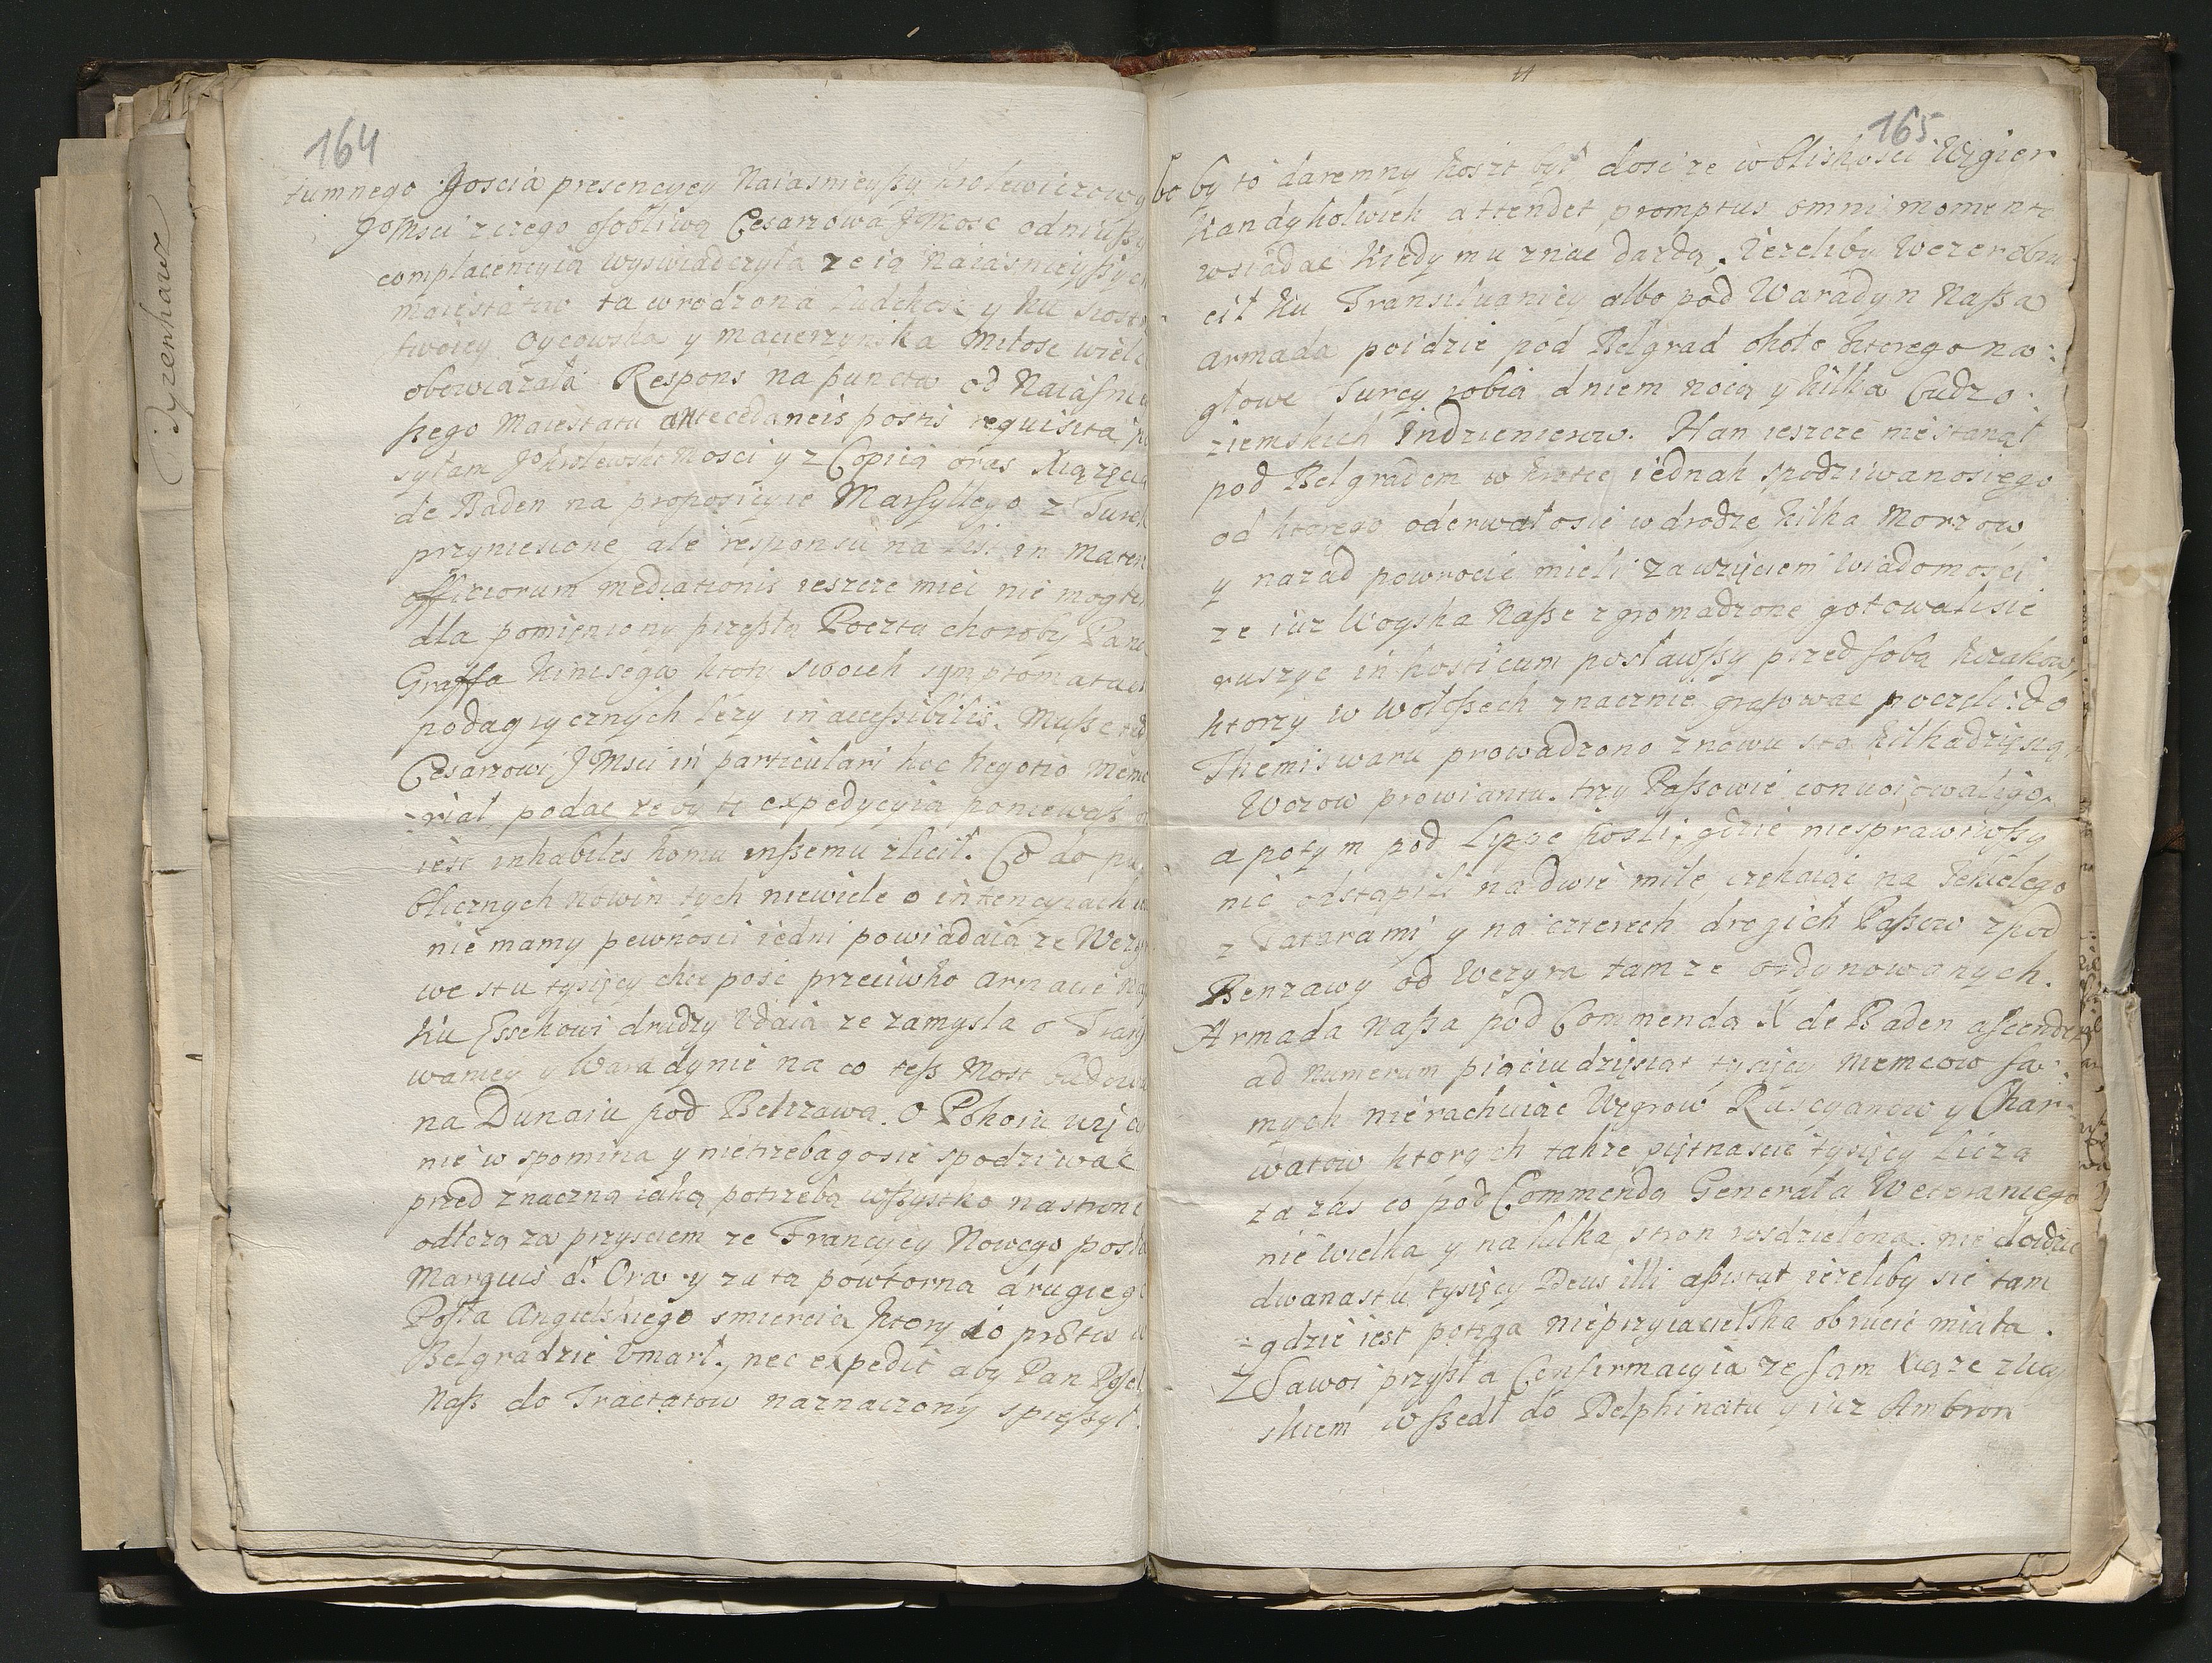 164
tumnego Joscia presencyey Naiasnieyßy Krolewiczowy
JoMsci z czego osobliwą Cesarzowa JMosc odniosßy
complacencyią wyswiadczyła ze ią Naiasnieyßych
Maiestatow ta wrodzona ludzkosc y ku Siostr
swoiey Oycowska y macierzynska Miłosc wiele
obowiązała Respons na puncta od Naiasniey
ßego Maiestatu antecedaneis postis requisita po
syłam JoKrolewsk: Mosci y z Copią oras Xiązęcia
de Baden na proposicyie Marsyllego z Turek
przyniesione ale responsu na list in materia
officiorum mediationis ieszcze miec nie mogłem
dla pomieniony przeßłą Pocztą choroby Pana
Graffa Kinisega ktory swoich symptomatach
podagrycznych lezy inaccessibilis. Mußę tedy
Cesarzowi JMsci in particulari hoc Negotio memo
-riał podac ze by tę expedycyią poniewaß
iest inhabiles komu inßemu zlecił. Co do pu
blicznych nowin tych niewiele o intencyiach
nie mamy pewnosci iedni powiadaią ze Wezyr
we stu tysięcy chce posc przeciwko armacie Naß
ku Essekowi drudzy Udaią ze zamysla o Transyl
waniey y Waradynie na co teß Most buduią
na Dunaiu pod Belrzawą. O Pokoiu Wezyr
nie wspomina y nietrzebagosie spodziwac
przed znaczną iaką potrzebą wßzystko na stronę
odłozą za przysciem ze Francyey Nowego posła
Marquis d. Ora y za tą powtorna drugiego
Posła Angielskiego smiercią ktory do protis w
Belgradzie Umarł, nec expedit aby Pan Poseł
Naß do Tractatow naznaczony spießył.
165
bo by to daremny koszt był dosc ze w bliskosci Węgier
kandykolwiek attendet promptus omni momento
wsiadac kiedy mu znac dadzą. Iezeliby Wezer obru
cił ku Transilwaniey albo pod Waradyn Naßa
armada poidzie pod Belgrad około ktorego na:
głowe Turcy robią dniem nocą y kilka Cudzo:
ziemskich Indzienierow. Han ieszcze nie stanął
pod Belgradem w krotce iednak spodziwanosięgo
od ktorego oderwałosie w drodze kilka Morzow
y nazad powrocic mieli zawzięciem wiadomosci
ze iuz Woyska Naße zgromadzone gotowalisie
ruszyc in hosticum posławßy przed sobą kozakow,
ktorzy w Wołoßech znacznie grasowac poczeli: do
Themiswaru prowadzono znowu sto kilkadziesią
Wozow prowiantu. trzy Paßowie conwoiowaligo.
a potym pod Lippe poßli: gdzie niesprawiwßy
nic odstąpili na dwie mile czekaiąc na Tekielego
z Tatarami y na czterech drogich Paßow z pod
Benzawy od Wezyra tamze ordynowanych.
Armada Naßa pod Commendą X de Baden ascendet
ad numerum piąciudziesiąt tysięcy Niemcow sa:
mych nie rachuiąc Węgrow Ruscyanow y Char-
watow ktorych takze piętnascie tysięcy liczą
ta zas co pod Commendą Generała Weteraniego
nie wielka y na kilka stron rosdzielona: nie doidzie
dwanastu tysięcy Deus illi assistat iezeliby sie tam
-gdzie iest potęga nieprzyiacielska obrucic miała.
Z Sawoi przyßła Confirmacyia ze sam Xiąze z woy
skiem wßedł do Delphinatu y iuz Ambron
Tyzenhauz